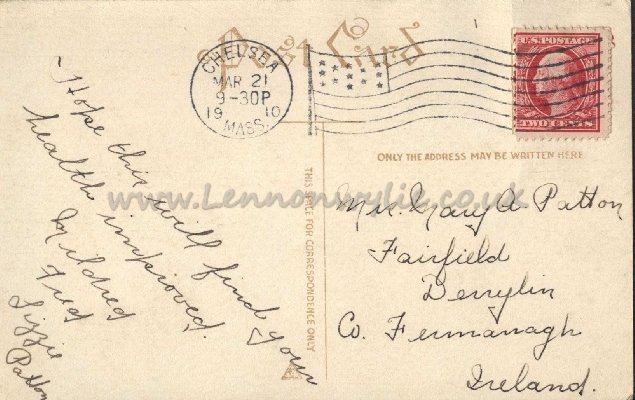 Post Card
CHELSEA
MAR 21
9-30P
1910
MASS.
U.S. POSTAGE
TWO CENTS
ONLY THE ADDRESS MAY BE WRITTEN HERE
THIS SPACE FOR CORRESPONDENCE ONLY
www.Lennonwylie.co.uk
Hope this will find your
health improved.
Mildred
Fred
Lizzie
Patton
Mr. Gary A. Patton
Fairfield
Derrylin
Co. Fermanagh
Ireland.